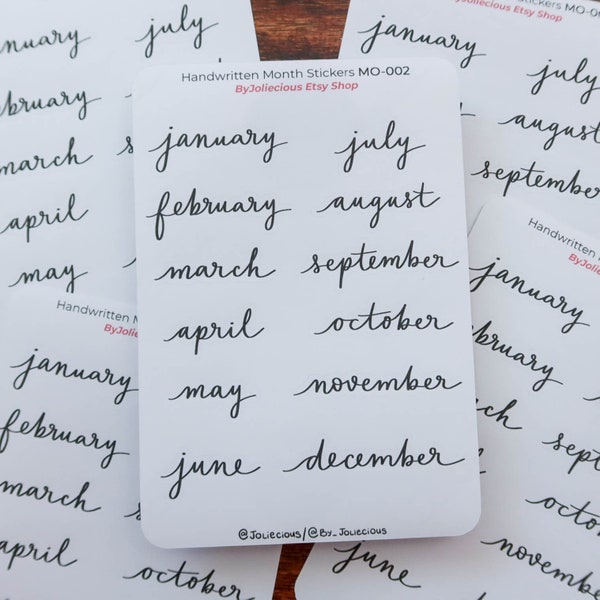 Handwritten Month Stickers MO-002
ByJoliecious Etsy Shop
january
july
february
august
march
september
april
october
may
november
june
december
@Joliecious/@By_Joliecious
january
july
february
march
april
may
stickers MO-0
ByJoliecious Etsy Shop
january
july
august
september
Handwritten M
ByJolie
january
february
march
april
october
june
Handwritten
ByJo
january
february
march
sept
octo
novembe